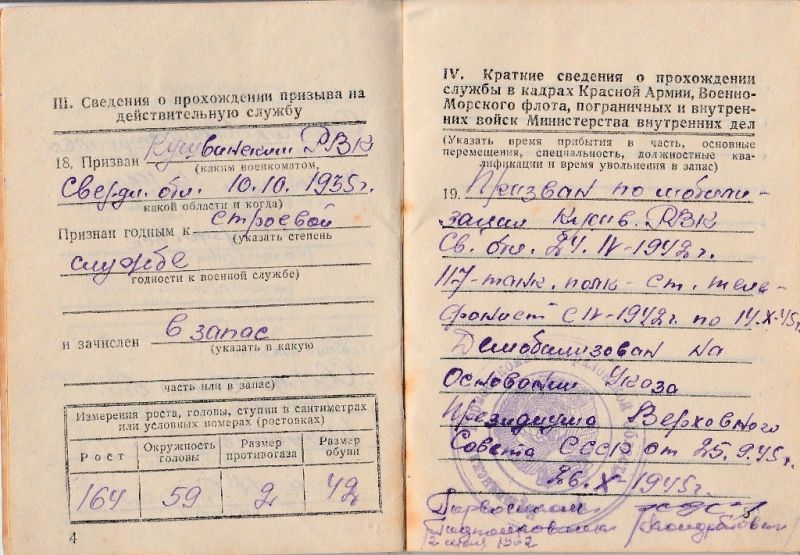 III. Сведения о прохождении призыва на
действительную службу
18. Призван Кушвинским РВК
(каким военкоматом,
Свердл. обл. 10.10. 1935г.
какой области и когда)
Признан годным к строевой
(указать степень
службе
годности к военной службе)
и зачислен в запас
(указать в какую
часть или в запас)
Измерения роста, головы, ступни в сантиметрах
или условных номерах (ростовках)
Рост Окружность головы Размер противогаза Размер обуви
164 59 2 42
4
IV. Краткие сведения о прохождении
службы в кадрах Красной Армии, Военно-
Морского флота, пограничных и внутрен-
них войск Министерства внутренних дел
(Указать время прибытия в часть, основные
перемещения, специальность, должностные ква-
лификации и время увольнения в запас)
19. Призван по мобили-
зации Кушв. РВК
Св. обл. 24. IV-1942г.
117-танк. полк - ст. теле-
фонист с IV-1942г. по 14.X-45г.
Демобилизован на
Основании Указа
Президиума Верховного
Совета СССР от 25.9.45г.
26.X-1945г.
1962